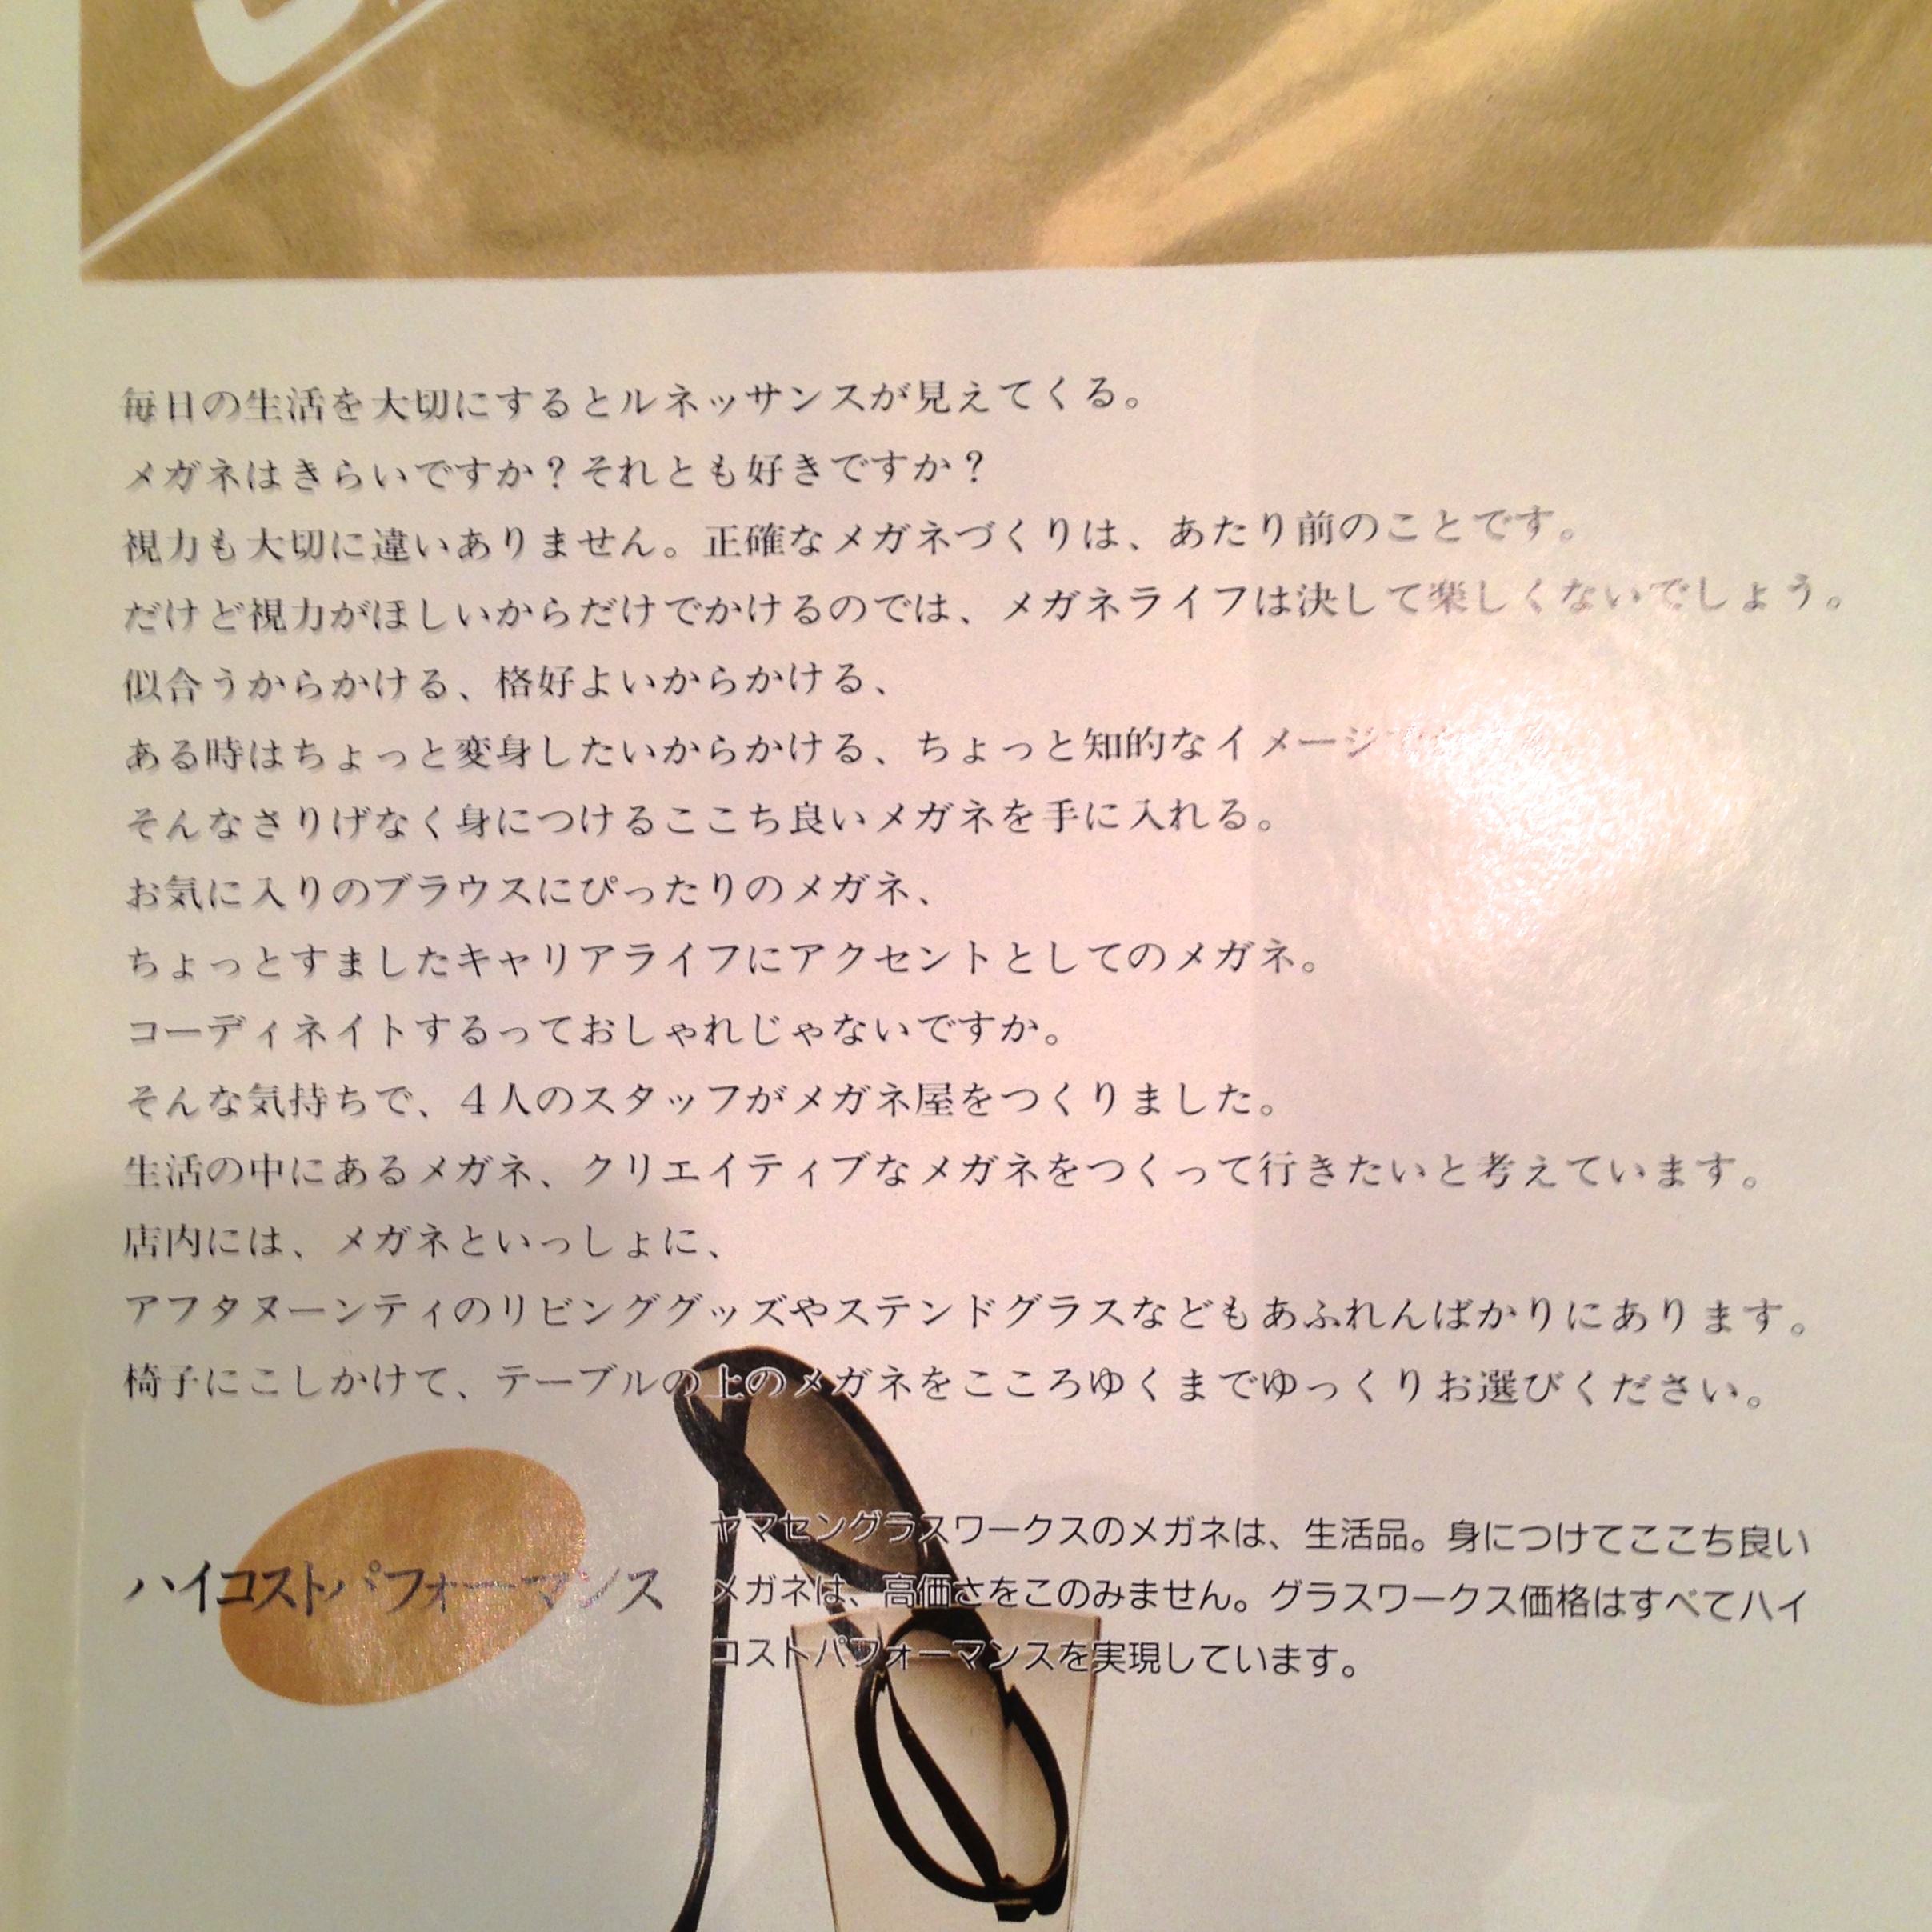 毎日の生活を大切にするとルネッサンスが見えてくる。
メガネはきらいですか？それとも好きですか？
視力も大切に違いありません。正確なメガネづくりは、あたり前のことです。
だけど視力がほしいからだけでかけるのでは、メガネライフは決して楽しくないでしょう。
似合うからかける、格好よいからかける、
ある時はちょっと変身したいからかける、ちょっと知的なイメージ
そんなさりげなく身につけるここち良いメガネを手に入れる。
お気に入りのブラウスにぴったりのメガネ、
ちょっとすましたキャリアライフにアクセントとしてのメガネ。
コーディネイトするっておしゃれじゃないですか。
そんな気持ちで、4人のスタッフがメガネ屋をつくりました。
生活の中にあるメガネ、クリエイティブなメガネをつくって行きたいと考えています。
店内には、メガネといっしょに、
アフタヌーンティのリビンググッズやステンドグラスなどもあふれんばかりにあります。
椅子にこしかけて、テーブルの上のメガネをこころゆくまでゆっくりお選びください。
ハイコストパフォーマンス
ヤマセングラスワークスのメガネは、生活品。身につけてここち良い
メガネは、高価さをこのみません。グラスワークス価格はすべてハイ
コストパフォーマンスを実現しています。